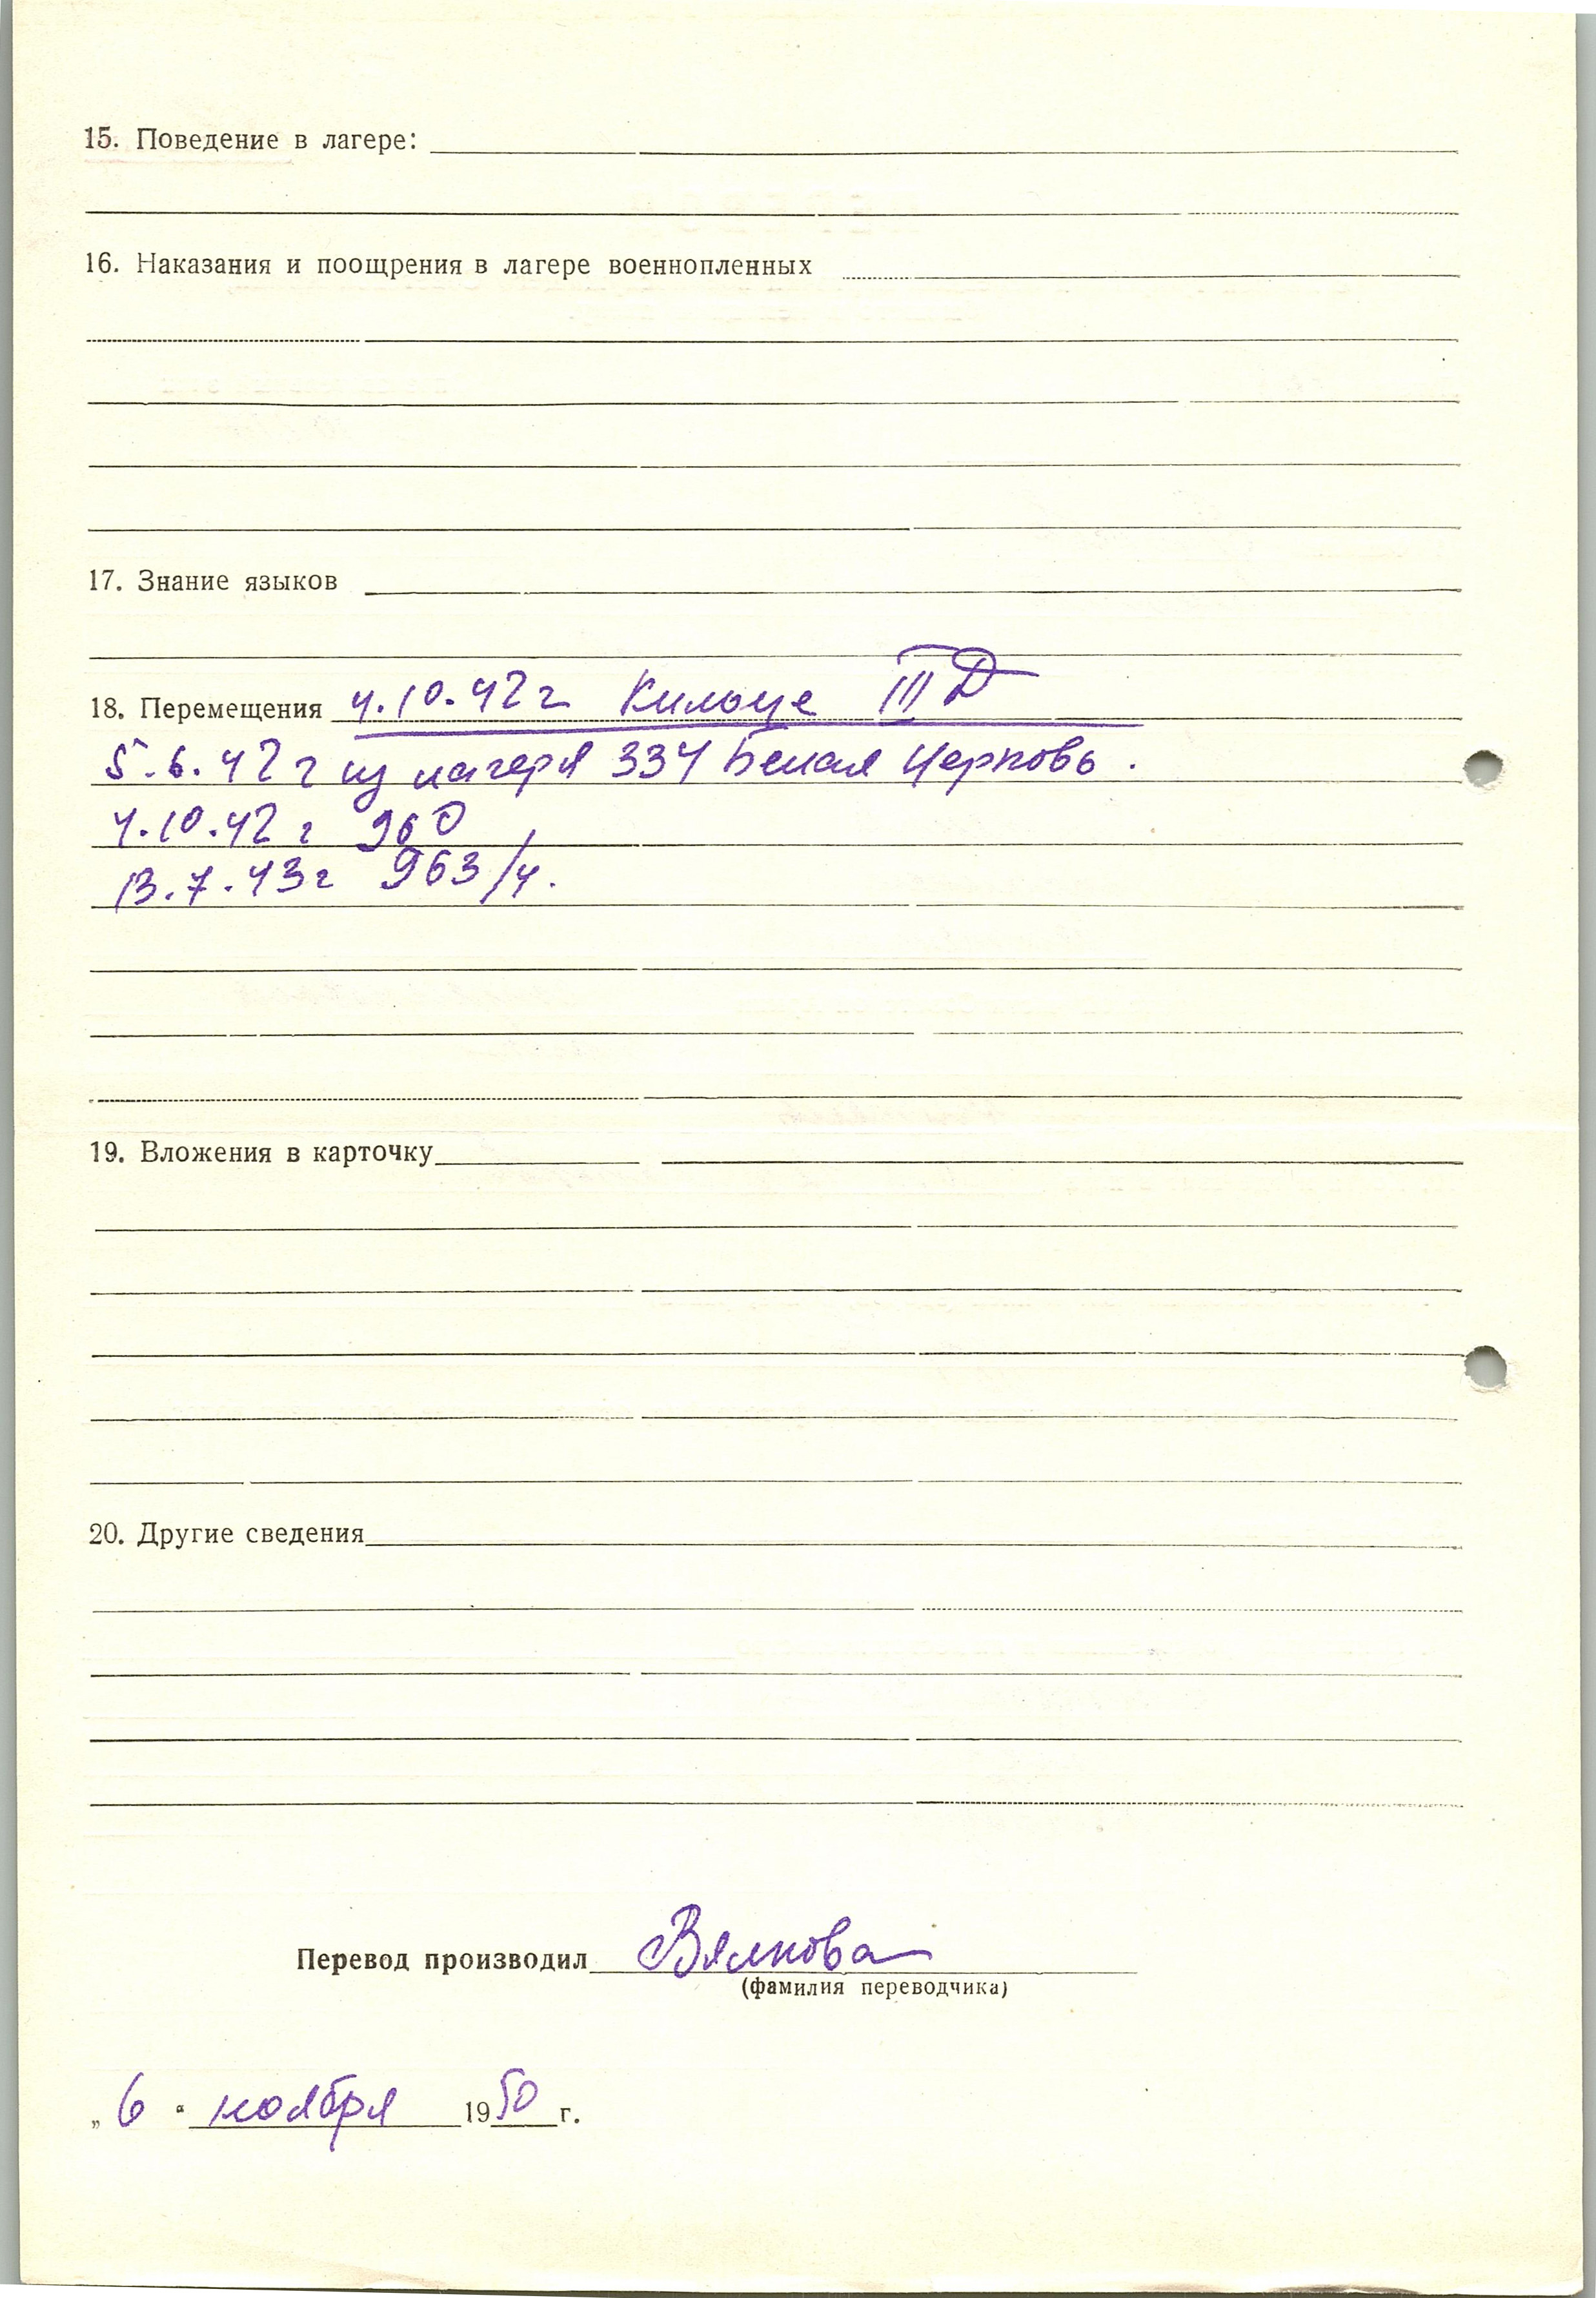 15. Поведение в лагере:
16. Наказания и поощрения в лагере военнопленных
17. Знание языков
18. Перемещения 4.10.42 г Кильце III D
5.6.42 г из лагеря 334 Белая Церковь.
4.10.42 г 960
13.7.43 г 963/4.
19. Вложения в карточку
20. Другие сведения
Перевод производил Вялкова
(фамилия переводчика)
„ 6 “ ноября 1950 г.